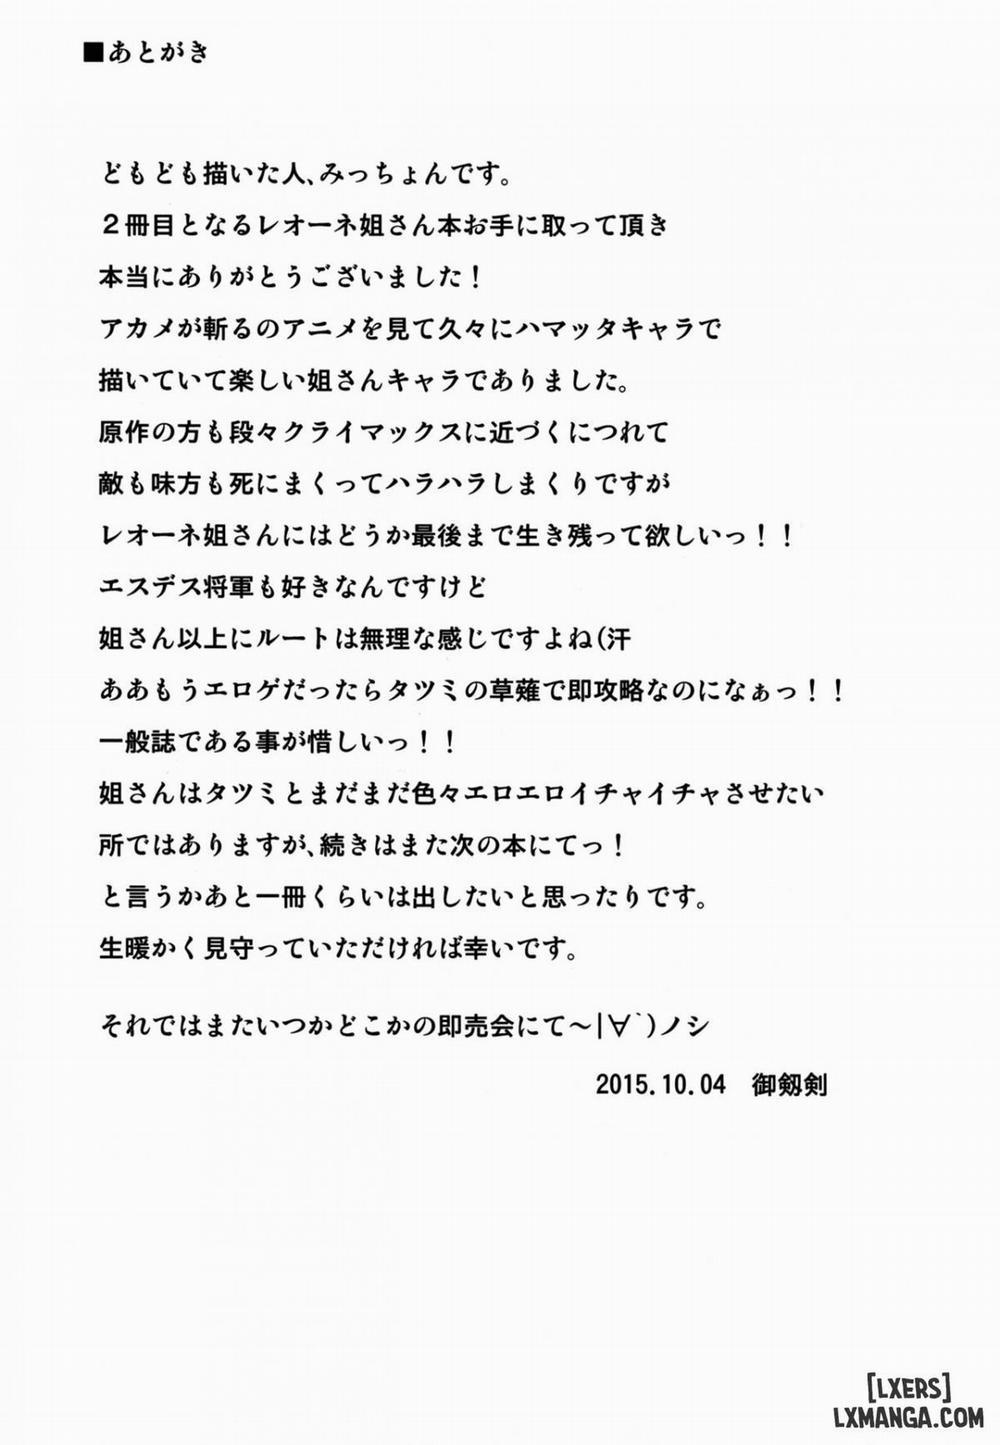 ■あとがき
どもども描いた人、みっちょんです。
２冊目となるレオーネ姐さん本お手に取って頂き
本当にありがとうございました！
アカメが斬るのアニメを見て久々にハマッタキャラで
描いていて楽しい姐さんキャラでありました。
原作の方も段々クライマックスに近づくにつれて
敵も味方も死にまくってハラハラしまくりですが
レオーネ姐さんにはどうか最後まで生き残って欲しいっ！！
エスデス将軍も好きなんですけど
姐さん以上にルートは無理な感じですよね(汗
ああもうエロゲだったらタツミの草薙で即攻略なのになぁっ！！
一般誌である事が惜しいっ！！
姐さんはタツミとまだまだ色々エロエロイチャイチャさせたい
所ではありますが、続きはまた次の本にてっ！
と言うかあと一冊くらいは出したいと思ったりです。
生暖かく見守っていただければ幸いです。
それではまたいつかどこかの即売会にて～|∀｀)ノシ
2015.10.04　御剱剣
[LXERS]
LXMANGA.COM